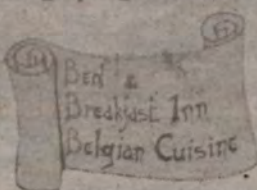 Bed &
Breakfast Inn
Belgian Cuisine